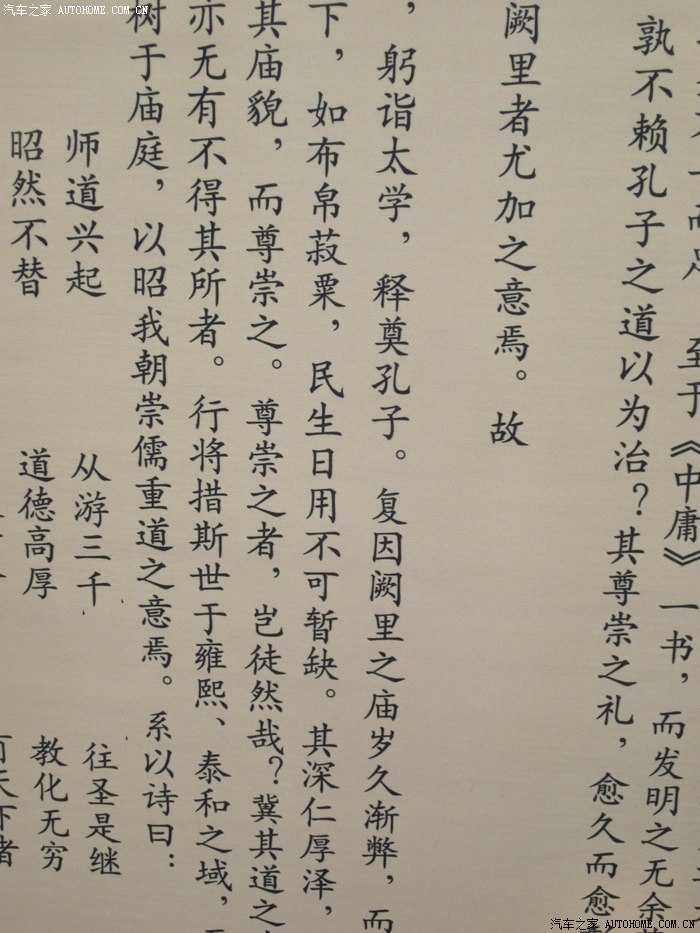 汽车之家 AUTOHOME.COM.CN
而足 至于《中庸》一书，而发明之无余
孰不赖孔子之道以为治？其尊崇之礼，愈久而愈
阙里者尤加之意焉。故
，躬诣太学，释奠孔子。复因阙里之庙岁久渐弊，而
下，如布帛菽粟，民生日用不可暂缺。其深仁厚泽，
其庙貌，而尊崇之。尊崇之者，岂徒然哉？冀其道之
亦无有不得其所者。行将措斯世于雍熙、泰和之域，
树于庙庭，以昭我朝崇儒重道之意焉。系以诗曰：
师道兴起 从游三千 往圣是继
昭然不替 道德高厚 教化无穷
天下者
汽车之家 AUTOHOME.COM.CN